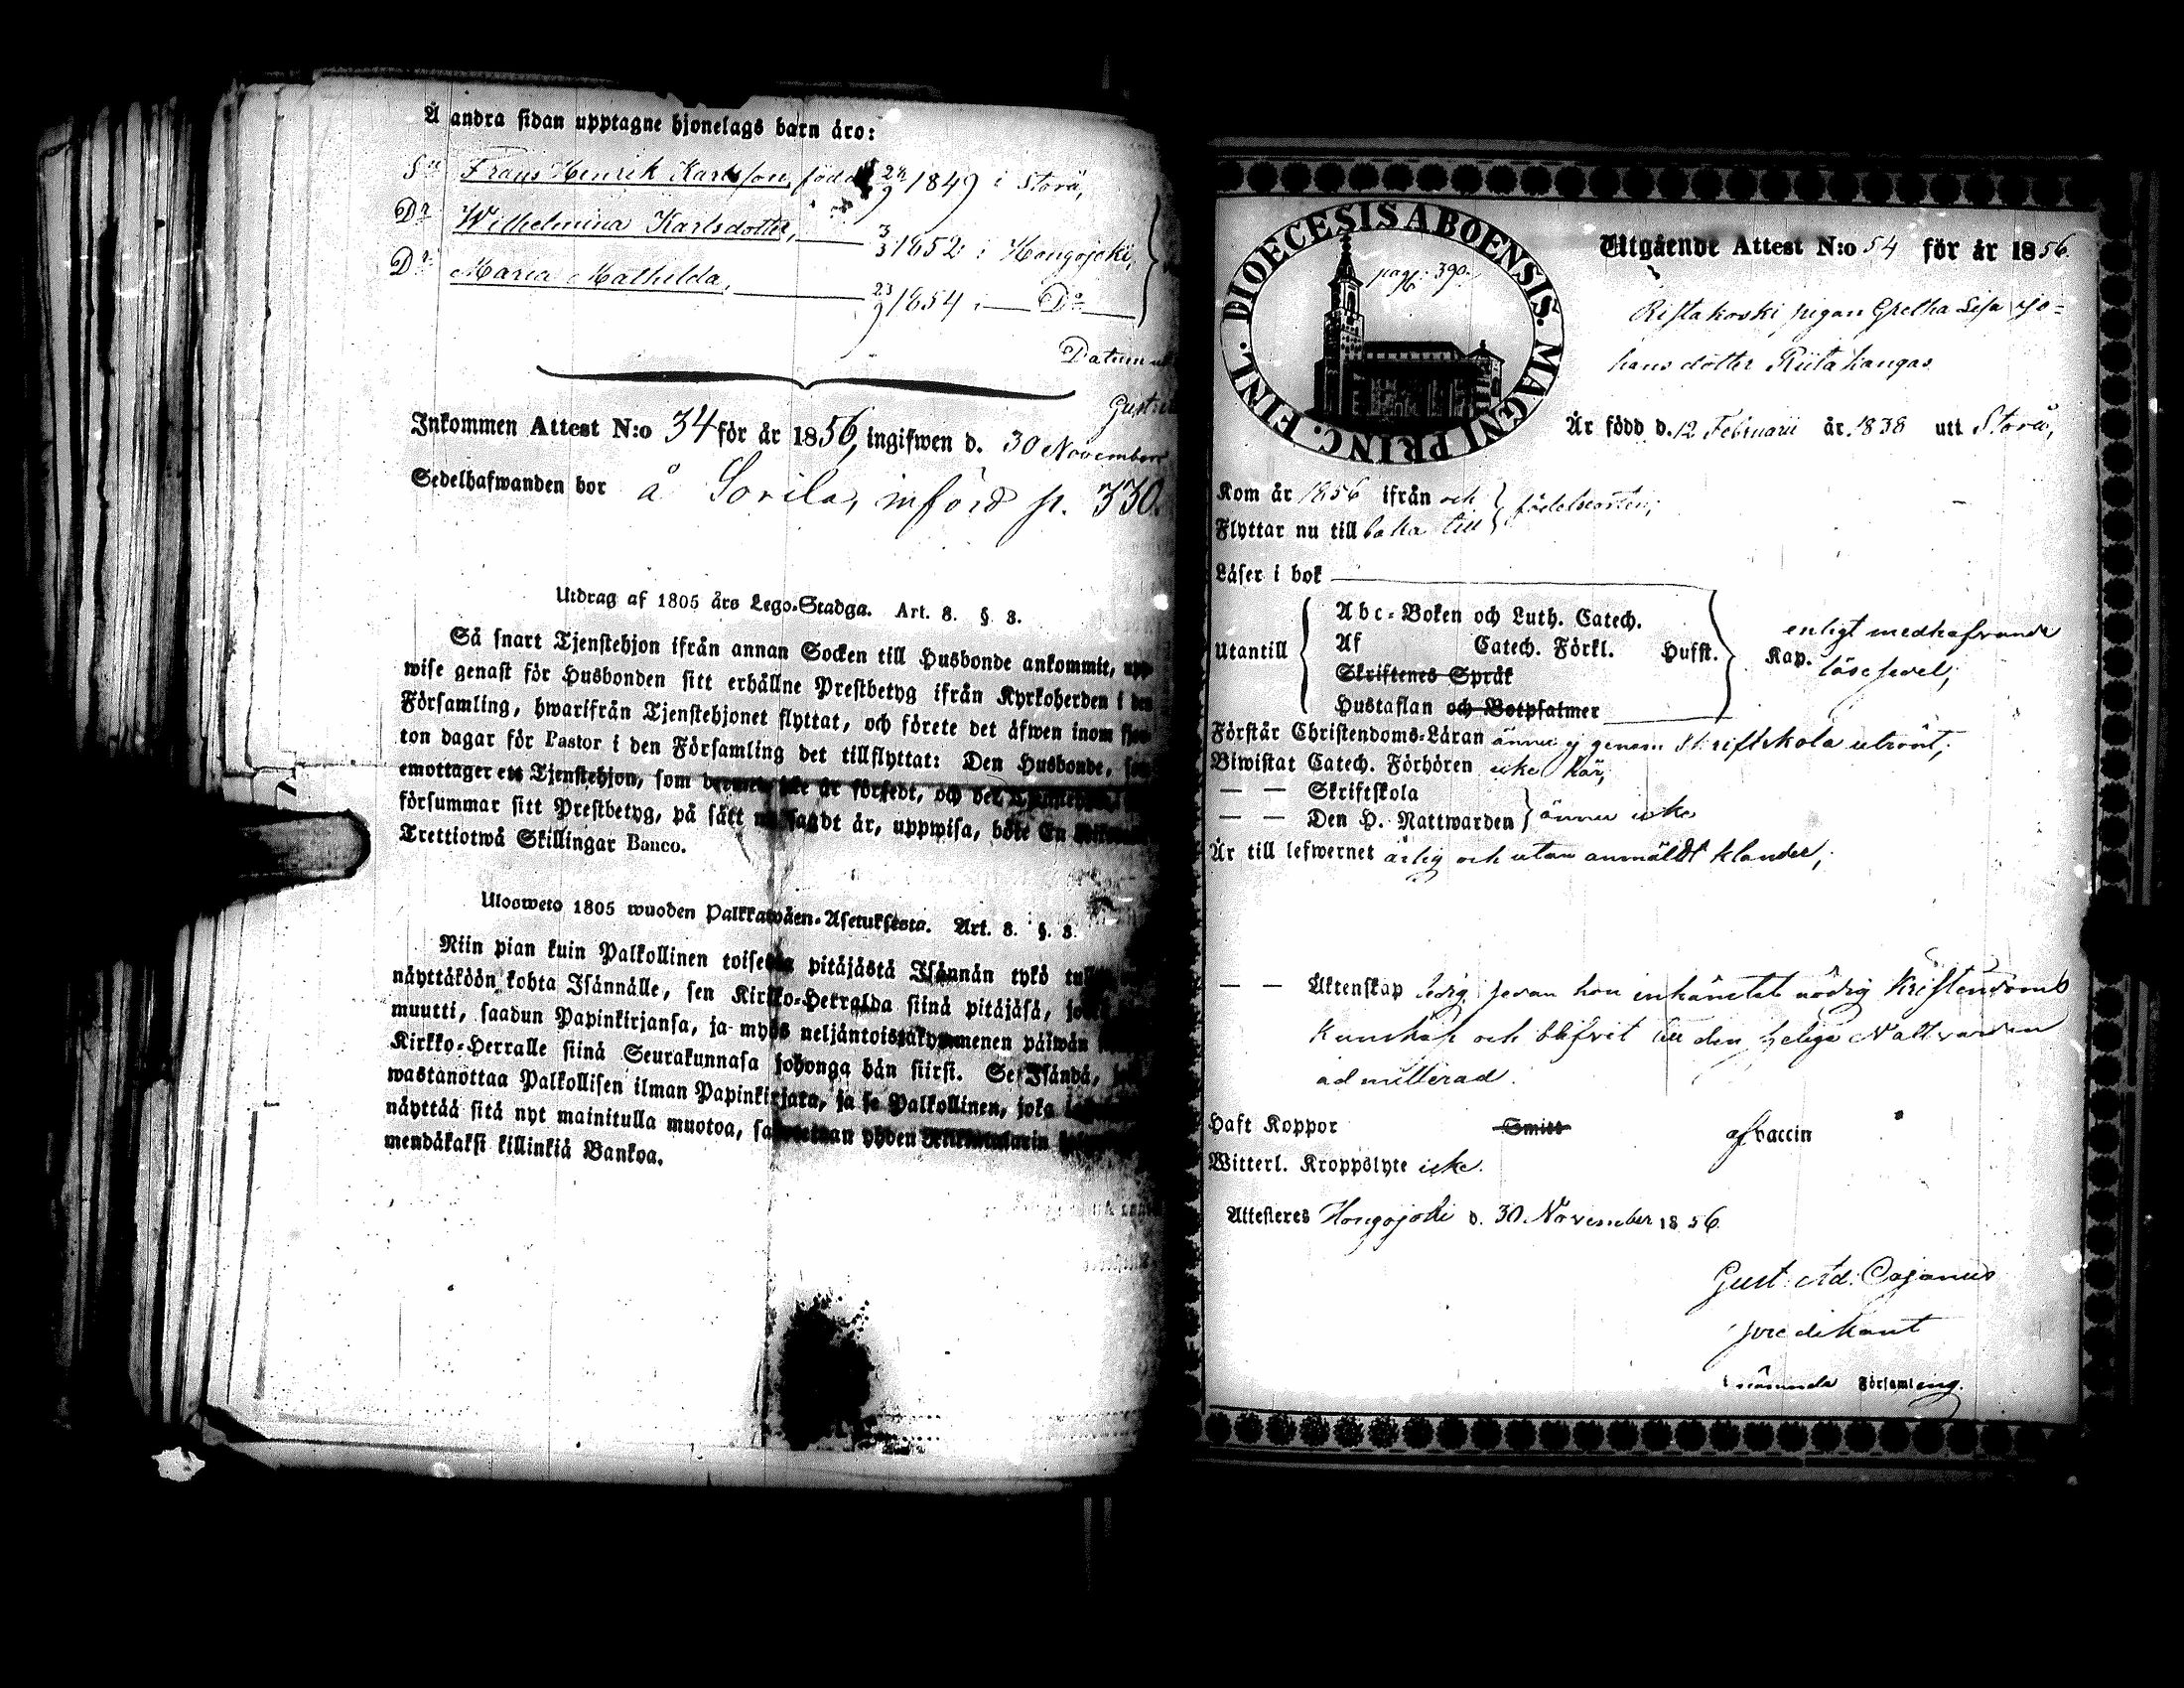 Å andra sidan upptagne hjonelags barn äro:
Sn Frans Henrik Karlsson, född 24/9 1849 i Storå,
Dr Wilhelmina Karlsdotter, 3/3 1852 i Hongojoki,
Dr Maria Mathilda, 23/9 1854 i Do
Datum
Gust
Inkommen Attest N:o 34 för år 1856, ingifwen d. 30 November
Sedelhafwanden bor å Sorila, införd p. 330.
Utdrag af 1805 års Lego-Stadga. Art. 8. § 3.
Så snart Tjenstehjon ifrån annan Socken till Husbonde ankommit, upp-
wise genast för Husbonden sitt erhållne Prestbetyg ifrån Kyrkoherden i den
Församling, hwarifrån Tjenstehjonet flyttat, och förete det äfwen inom fjor-
ton dagar för Pastor i den Församling det tillflyttat: Den Husbonde, som
emottager ett Tjenstehjon, som dermed icke är försedt, och det
försummar sitt Prestbetyg, på sätt nu sagdt är, uppwisa, böte En
Trettiotwå Skillingar Banco.
Ulosweto 1805 wuoden Palkkawäen-Asetuksesta. Art. 8. §. 3.
Niin pian kuin Palkollinen toisesta pitäjästä Isännän tykö
näyttäköön kohta Isännälle, sen Kirkko-Herralda siinä pitäjäsä,
muutti, saadun Papinkirjansa, ja myös neljäntoistakymmenen päiwän
Kirkko-Herralle siinä Seurakunnasa johonga hän siirsi. Se Isändä,
wastanottaa Palkollisen ilman Papinkirjata, ja se Palkollinen, joka
näyttää sitä nyt mainitulla muotoa, yhden
mendäkaksi killinkiä Bankoa.
DIOECESIS ABOENSIS. MAGNI PRINC. FINL.
pag. 390.
Utgående Attest N:o 54 för år 1856.
Ristakoski pigan Gretha Lisa Jo-
hansdotter Riitahangas
Är född d. 12 Februarii år 1838 uti Storå,
Kom år 1856 ifrån och
Flyttar nu till baka till födelseorten;
Läser i bok
Abc-Boken och Luth. Catech.
Utantill Af Catech. Förkl. Hufst. Kap. enligt medhafvande
Skriftenes Språk läsesedel,
Hustaflan och Botpsalmer
Förstår Christendoms-Läran ännu ej genom Skriftskola utrönt,
Biwistat Catech. Förhören icke här,
— — Skriftskola
— — Den H. Nattwarden ännu icke
Är till lefwernet ärlig och utan anmäldt klander,
— — Äktenskap ledig sedan hon inhämtat nödig Kristendoms
kunskap och blifvit till den heliga Nattvarden
admitterad.
Haft Koppor Smitt af vaccin
Witterl. Kroppslyte icke.
Attesteres Hongojoki d. 30 November 1856.
Gust. Ad. Cajanus
predikant
i nämnde Församling.